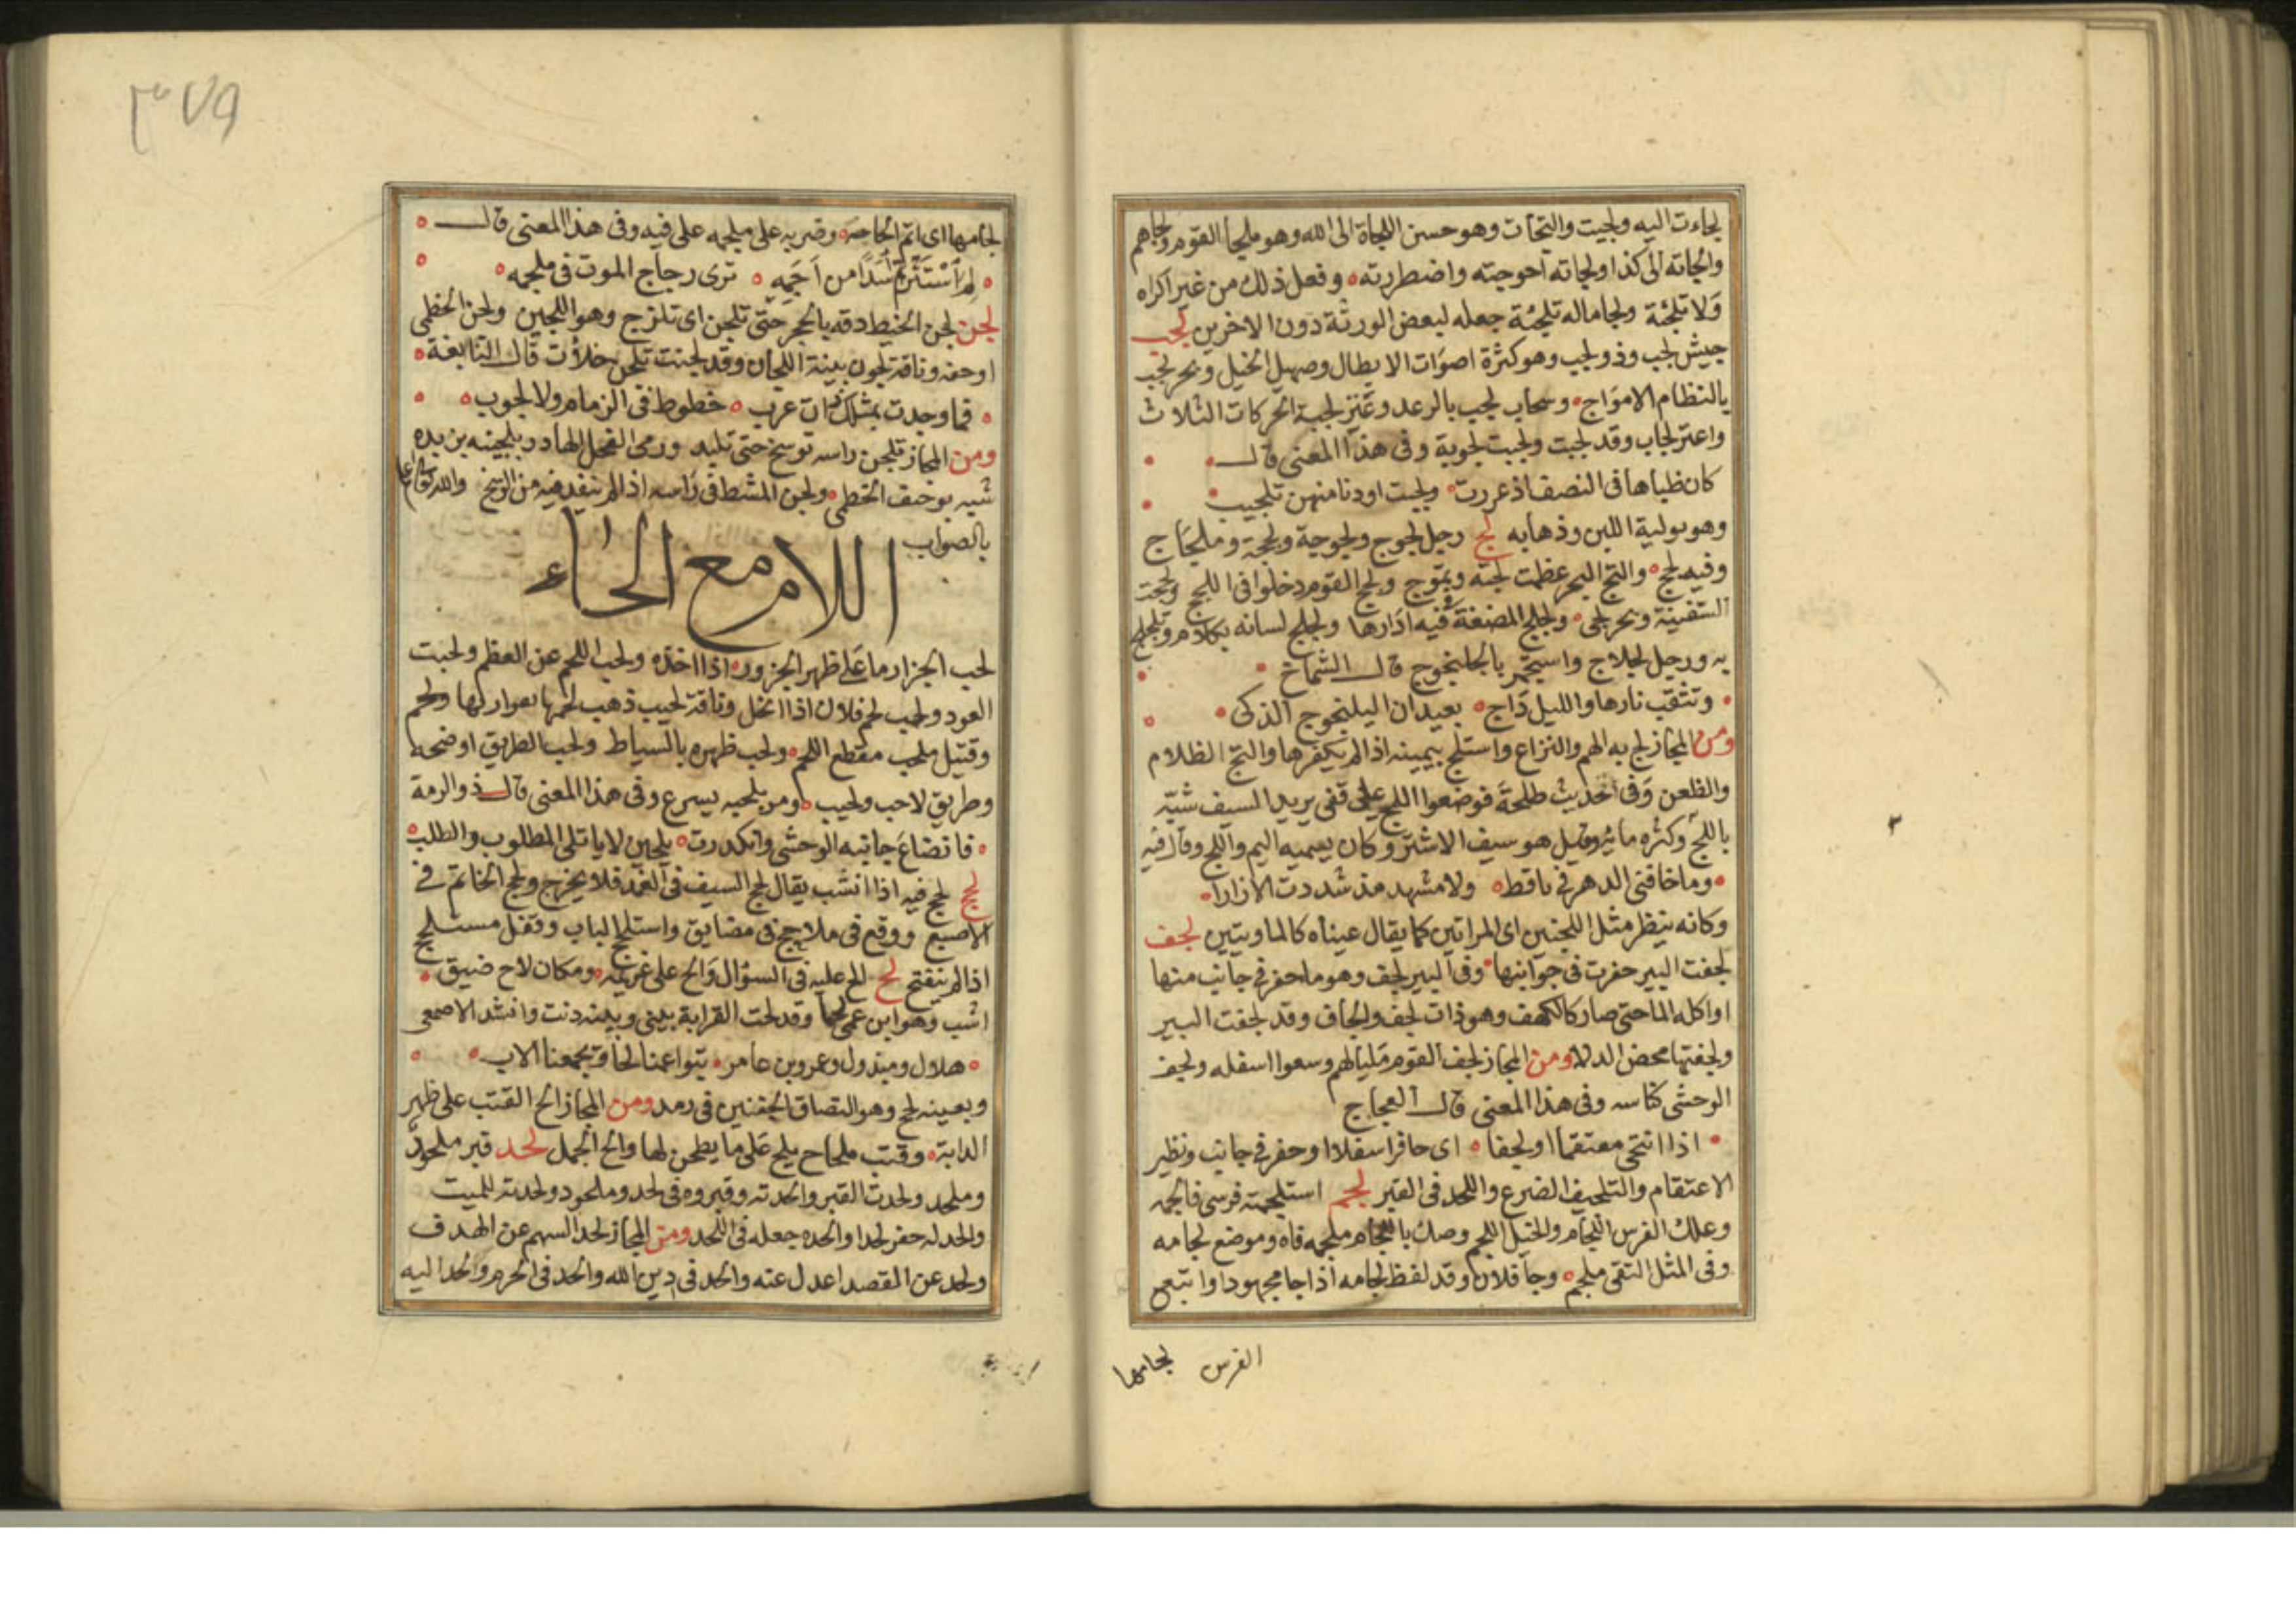 لجاءت اليه ولجيت والتجأت وهو حسن اللجاة الى الله وهو ملجأ القوم ولجاهم
والجاته الى كذا ولجاته احوجته واضطررته وفعل ذلك من غير اكراه
ولا تلجئة ولجا ماله تلجئة جعله لبعض الورثة دون الاخرين لجب
جيش لجب وذو لجب وهو كثرة اصوات الابطال وصهيل الخيل وبحر لجب
بالتظام الامواج وسحاب لجب بالرعد وعنز لجبة الحركات الثلاث
واعنز لجاب وقد لجبت ولجبت لجوبة وفى هذا المعنى قال
كان ظباها فى النصف اذعررت ولجبت اودنا منهن تلجيب
وهو تولية اللبن وذهابه لج رجل لجوج ولجوجة ولججة وملجاج
وفيه لجج والتج البحر عظمت لجته وتموج ولجج القوم دخلوا فى اللجج ولججت
السفينة وبحر لجى ولجلج المضغة فى فيه ادارها ولجلج لسانه بكلام وتلجلج
به ورجل لجلاج واستجمر بالجلنجوج قال الشماخ
وتثقب نارها والليل داج بعيدان اليلنجوج الذكى
ومن المجاز لج به الهم والنزاع واستلج بيمينه اذا لم يكفرها والتج الظلام
والظعن وفى حديث طلحة فوضعوا اللج على قفى يريد السيف شبه
باللج وكثره مائه وقيل هو سيف الاشتر وكان يسميه اليم واللج وقال فيه
وما خافنى الدهر فى باقط ولا مشهد مذ شددت الازارا
وكانه ينظر مثل اللجنين اى المراتين كما يقال عيناه كالماويتين لجف
لجفت البير حفرت فى جوانبها وفى البير لجف وهو ما حفر فى جانب منها
او اكله الما حتى صار كالكهف وهو ذات لجف والجاف وقد لجفت البير
ولجفتها محض الدلا ومن المجاز لجف القوم مكيالهم وسعوا اسفله ولجف
الوحشى كناسه وفى هذا المعنى قال العجاج
اذا انتحى معتقما او لجفا اى حافرا سفلا او حفر فى جانب ونظير
الاعتقام والتلجيف الضرع واللحد فى القبر لجم استلجمته فرسى فالجمه
وعلك الفرس اللجام والخيل اللجم وصك باللجام ملجمه فاه وموضع لجامه
وفى المثل التقى ملجم وجا فلان وقد لفظ لجامه اذا جا مجهودا واتبعن
الفرس لجامها
٣٧٩
لجامها اى اتم الحاجة وضربه على ملجمه على فيه وفى هذا المعنى قال
لم استثرتم اسدا من اجمه ترى رجاج الموت فى ملجمه
لجن لجن الخيط دقه بالحجر حتى تلجن اى تلزج وهو اللجين ولجن الخطمى
اوخفه وناقة لجون بينة اللجان وقد لجنت تلجن خلأت قال النابغة
فما وجدت بمثلك ذات غرب خطوط فى الزمام ولا لجوب
ومن المجاز تلجن راسه توسخ حتى تلبد ورمى الفحل الهادر بلجينه بن بده
شبه بوخيف الخطمى ولجن المشط فى راسه اذا لم ينفذ فيه من الوسخ والله تعالى اعلم
بالصواب
اللام مع الحاء
لحب الجزار ما على ظهر الجزور اذا اخذه ولحب اللحم عن العظم ولحبت
العود ولحب لحم فلان اذا انحل وناقة لحيب ذهب لحمها بعوارلها ولحم
وقتيل ملحب مقطع اللحم ولحب ظهره بالسياط ولحب الطريق اوضحه
وطريق لاحب ولحيب ومر يلحبه يسرع وفى هذا المعنى قال ذو الرمة
فانضاع جانبه الوحشى وانكدرت يلحبن لا ياتلى المطلوب والطلب
لحج لحج فيه اذا انشب يقال لحج السيف فى الغمد فلا يخرج ولحج الخاتم فى
الاصبع ووقع فى ملاحج فى مضايق واستلحج الباب وقفل مستلحج
اذا لم ينفتح لح الح عليه فى السؤال والح على غريمه ومكان لاح ضيق
اشب وهو ابن عمى لحا وقد لحت القرابة بينى وبينه دنت وانشد الاصمعى
هلال ومبذول وعمرو بن عامر بنوا عمنا لحا وتجمعنا الاب
وبعينه لحح وهو التصاق الجفنين فى رمد ومن المجاز الح القتب على ظهر
الدابة وقتب ملحاح يلح على ما يطحن لها والح الجمل لحد قبر ملحود
وملحد ولحدت القبر والحدته وقبروه فى لحد وملحود ولحدته للميت
والحد له حفر لحدا والحده جعله فى اللحد ومن المجاز لحد السهم عن الهدف
ولحد عن المقصد اعدل عنه والحد فى دين الله والحد فى الحرم والحد اليه